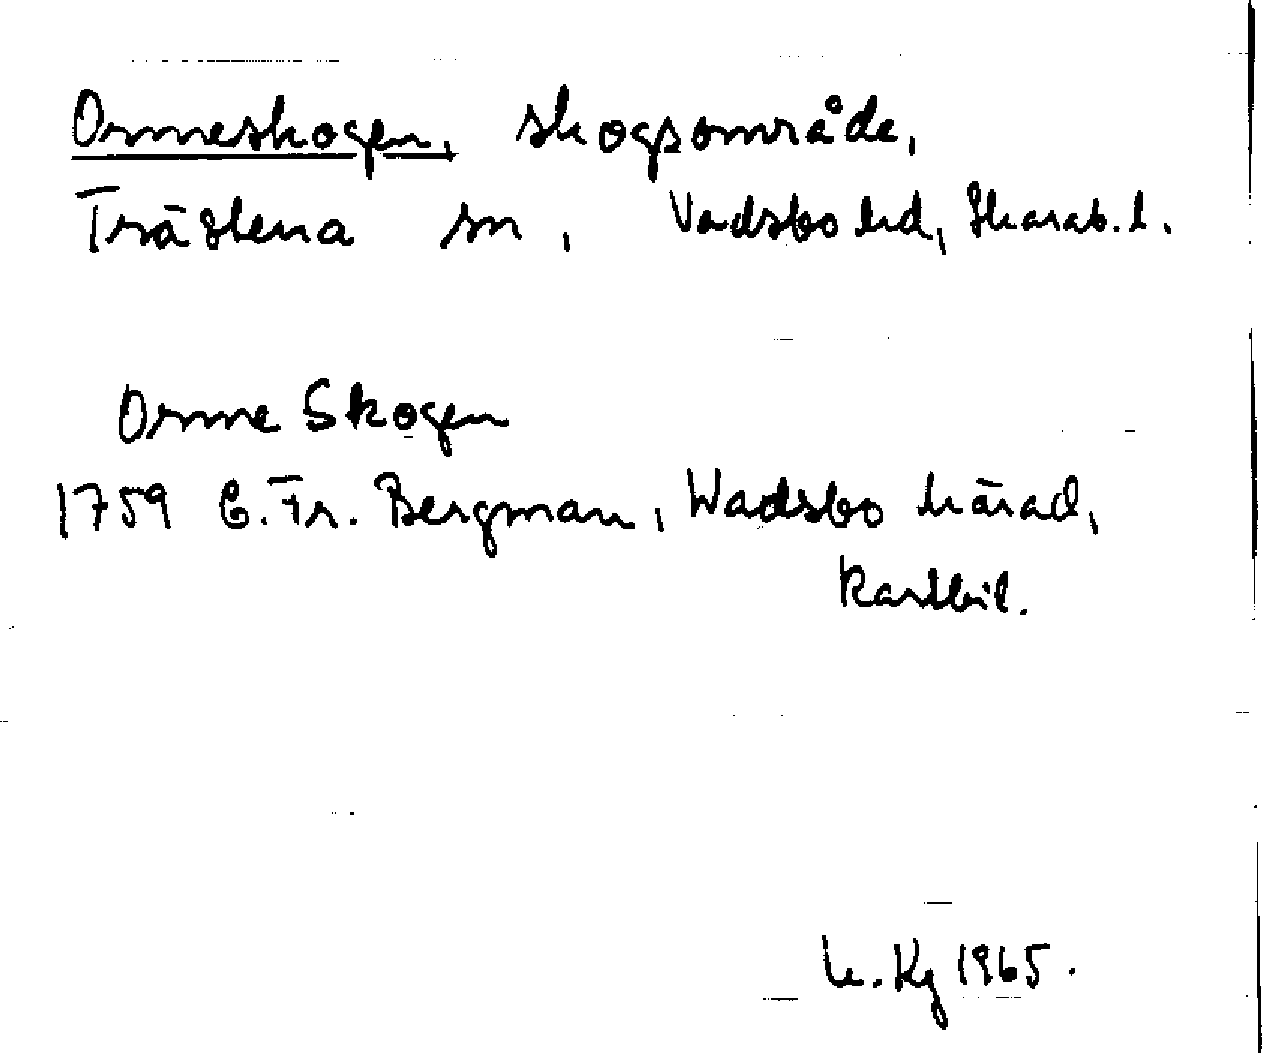 Ormeskogen, skogsområde,
Trästena sn, Vadsbo hd, Skarab. l.
Orme Skogen
1759 C. Fr. Bergman, Wadsbo härad,
kartbil.
Kj 1965.